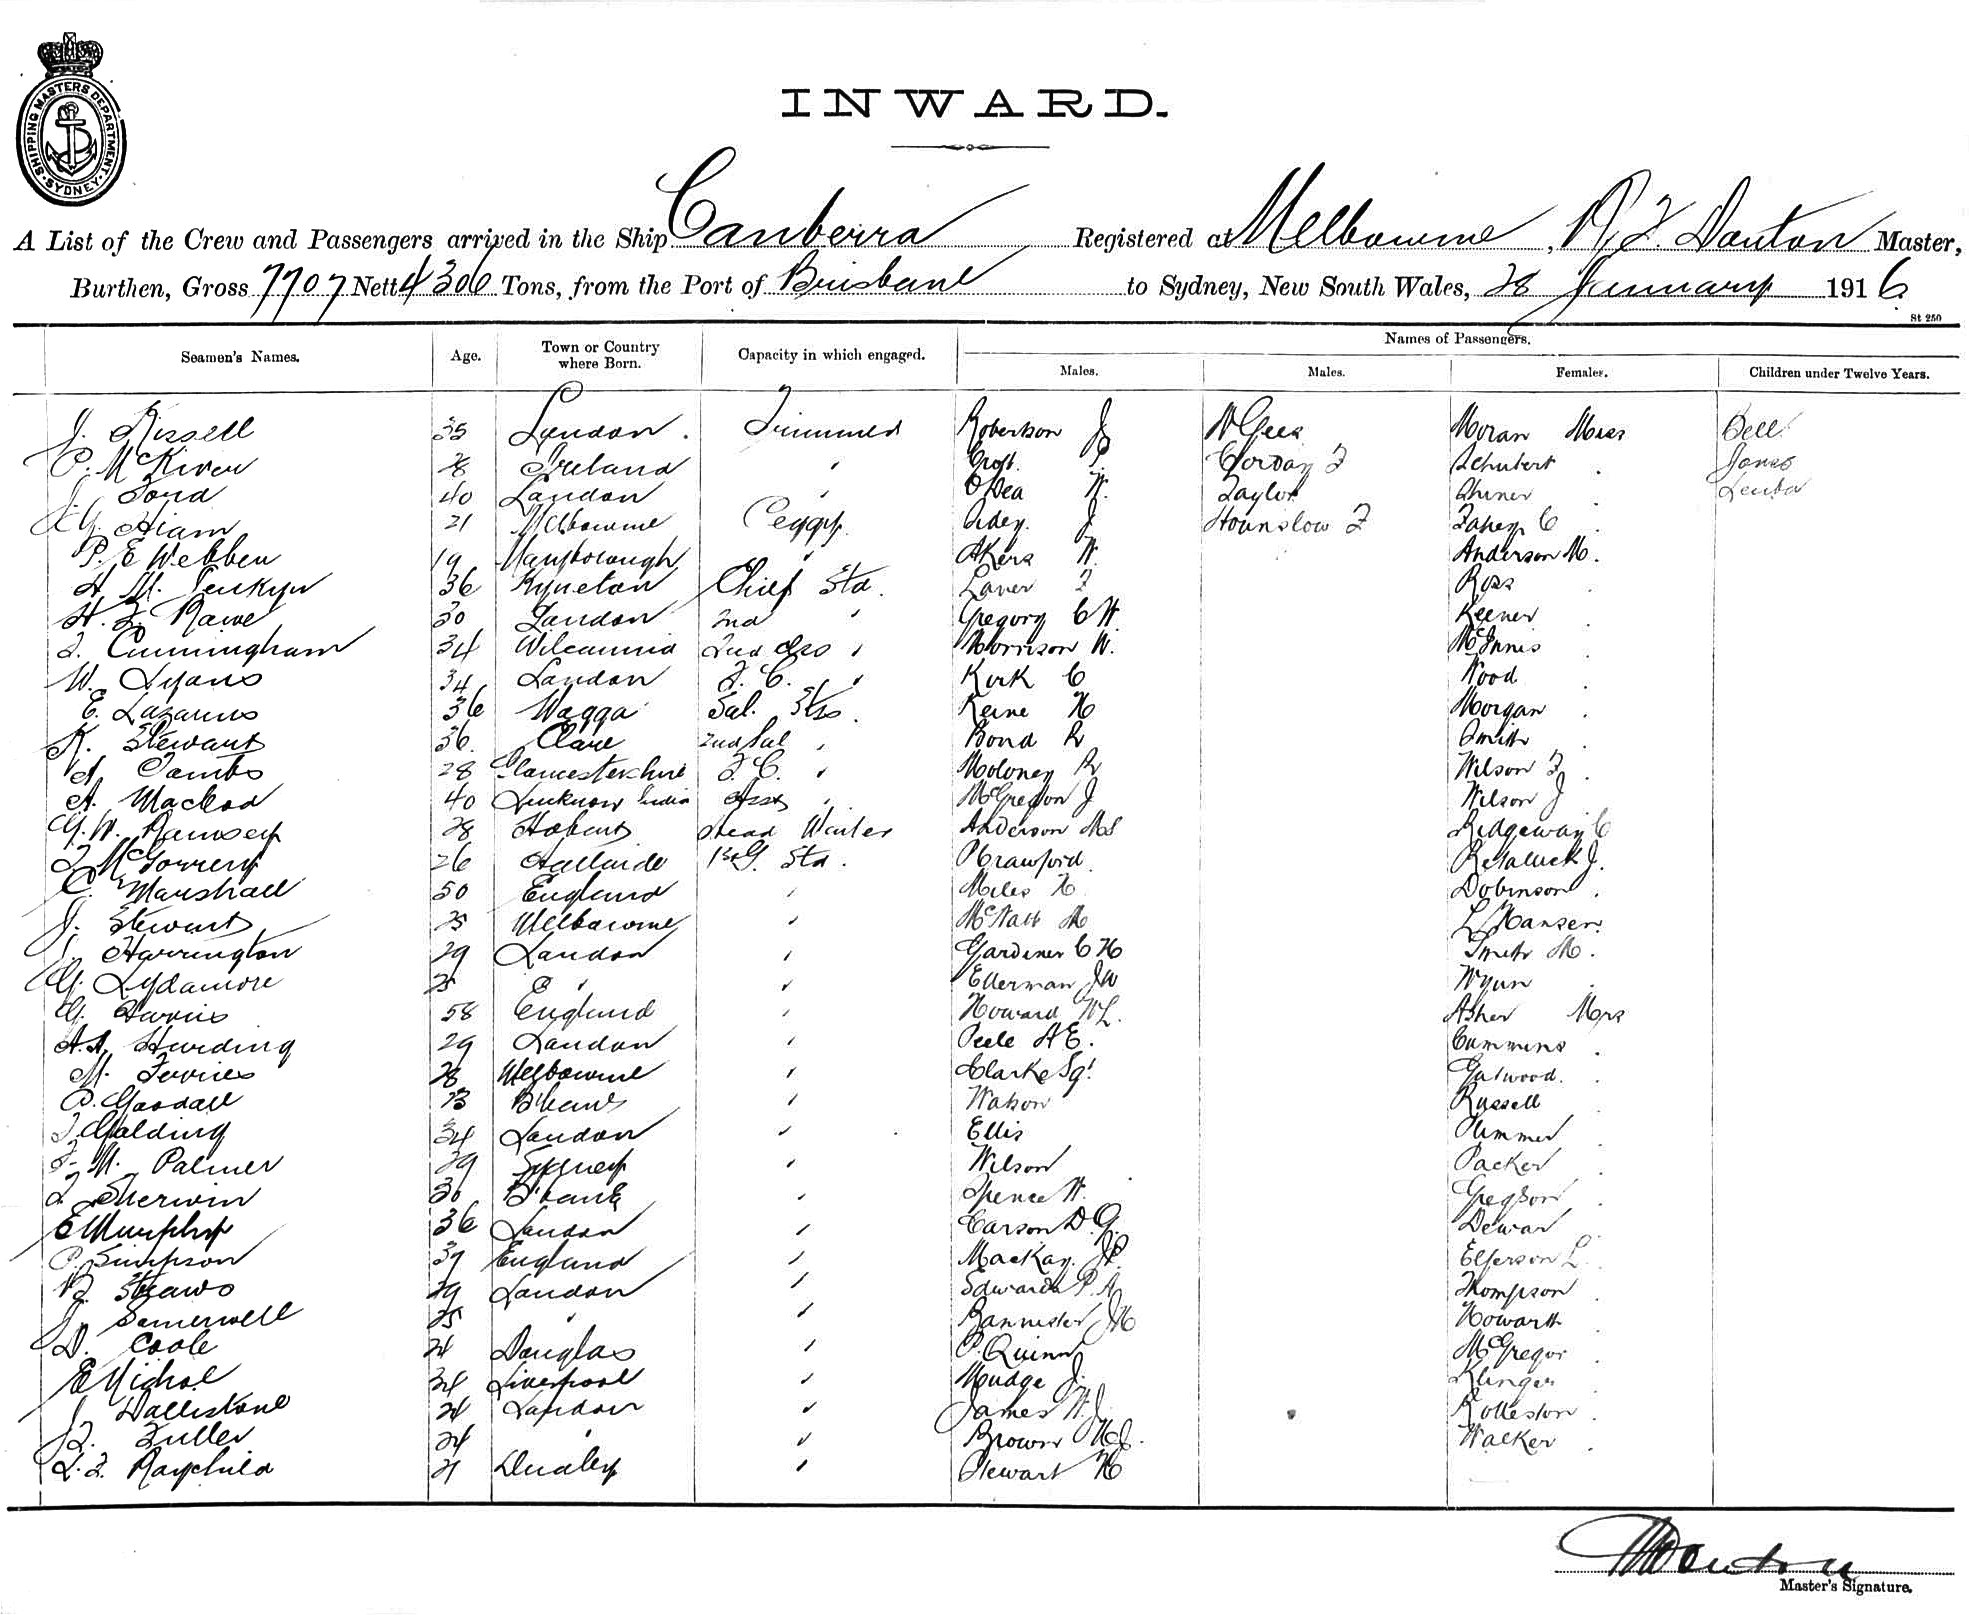 SHIPPING MASTERS DEPARTMENT. SYDNEY.
INWARD.
A List of the Crew and Passengers arrived in the Ship Canberra Registered at Melbourne, Master,
Burthen, Gross 7707 Nett 4306 Tons, from the Port of Brisbane to Sydney, New South Wales, 28 January 1916
St 250
Seamen's Names. Age. Town or Country where Born. Capacity in which engaged. Names of Passengers.
Males. Males. Females. Children under Twelve Years.
J. Kissell 35 London. Robertson J Moran Miss Bell
28 Ireland " Croft Corday F Schubert " Jones
J. Ford 40 London " O'Dea W. Taylor Shiner "
Hiam 21 Melbourne Peggy Adey. J Hounslow F Fahey C "
P. E Webben 19 Maryborough " Akers W. Anderson M.
H M. Kyneton Chief Std. Laner F Ross
H. F. Rawe 30 London 2nd " Gregory C H. Keener "
Cunningham 34 Wilcannia " Morrison W. McInnis "
W. Lyons 34 London F. C. " Kirk C Wood "
E. Lazarus 36 Wagga Sal. Keine H Morgan "
K. Stewart 36. Clare 2nd Sal " Bond R Smith "
Tambs 28 Gloucestershire F. C. " Moloney R Wilson F "
A. Macleod 40 Lucknow India Asst " J Wilson J
G. W. Ramsey 28 Hobart Head Waiter Anderson Ridgeway C
McGorrery 26 Adelaide Std. Crawford J.
C. Marshall 50 England " Miles H Dobinson "
J. Stewart 25 Melbourne " M L Hansen
Harrington 29 London " Gardiner C H Smith M.
G. Lydamore 25 " " Ellerman J W Wynn "
G. 58 England " Howard W L. Asher Mrs
A. A. Harding 29 London " Peele A E. Cummins "
M. 28 Melbourne " Clarke Gatwood. "
Goodall 23 B'bane " Watson Russell
Galding 34 London " Ellis Plimmer "
F. M. Palmer 29 Sydney " Wilson Packer "
Sherwin 30 B'bane " Spence H. Gregson "
E Murphy 36 London " Carson D. G. Dewar "
Simpson 39 England " Mackay. Elferson L.
29 London " Edwards P. A Thompson "
J. Somerwell 25 " " Bannister J H Howarth "
D. Coole 24 Douglas " P. Quinn McGregor "
E Nichol 34 Liverpool " Mudge J. Klinger "
J. Walliskane 24 London " James W. J. Rolleston "
Fuller 24 " " Brown Walker "
Raychild 21 Dudley " Stewart H
Master's Signature.